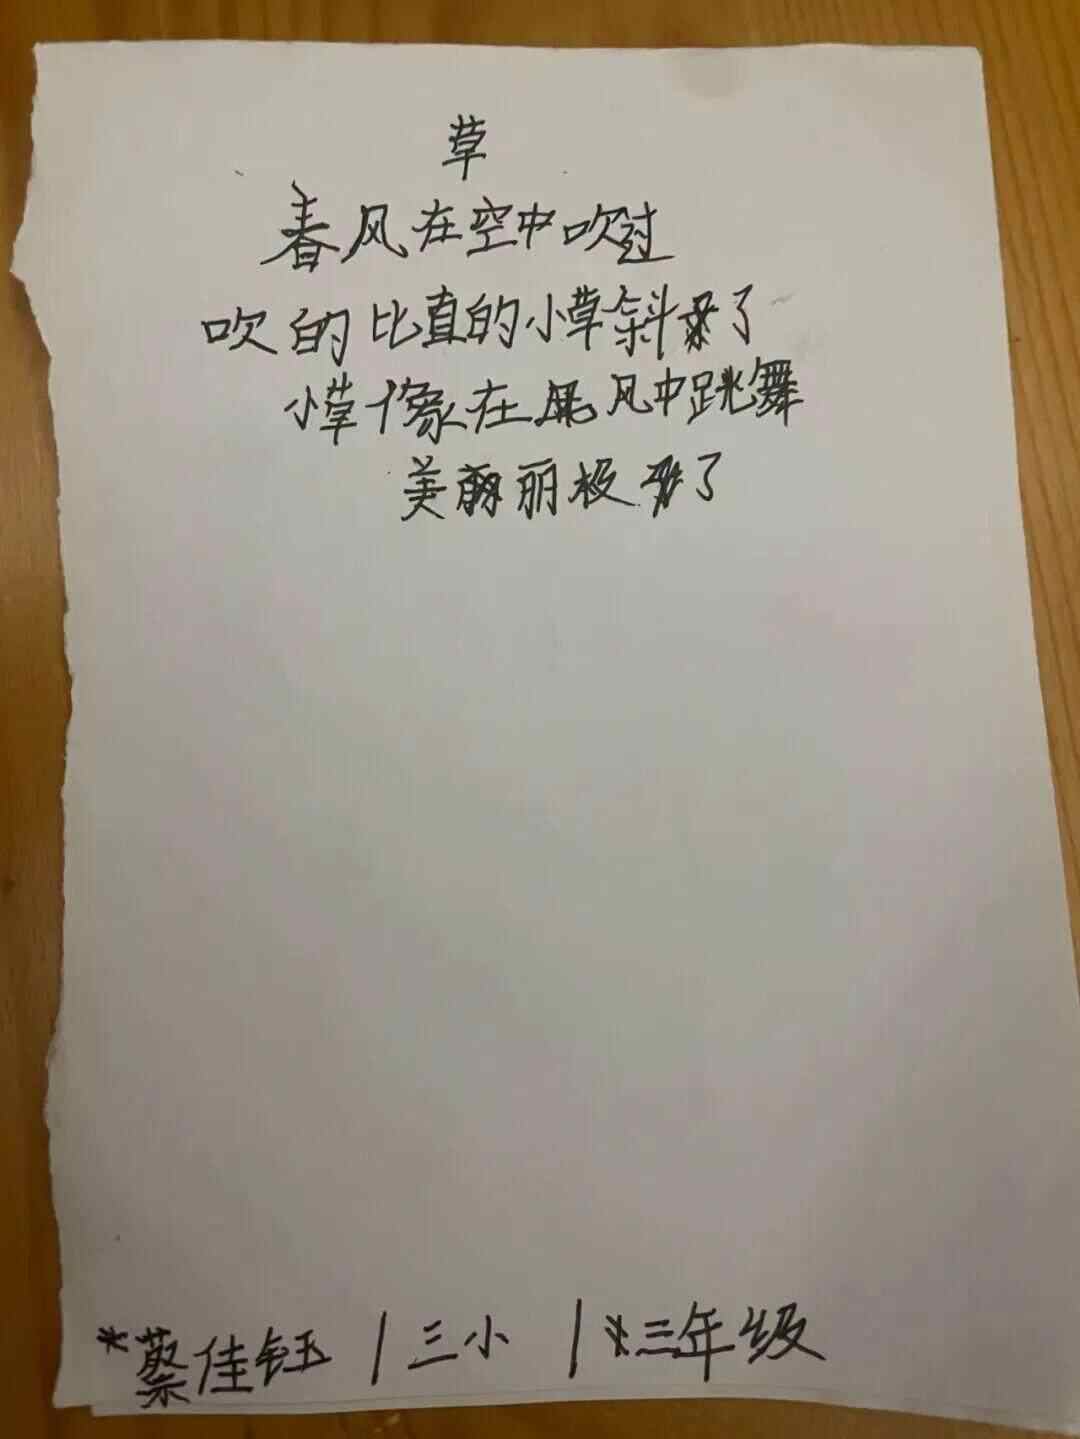 草
春风在空中吹过
吹的比直的小草斜了
小草像在风中跳舞
美丽极了
*蔡佳钰 | 三小 | 三年级